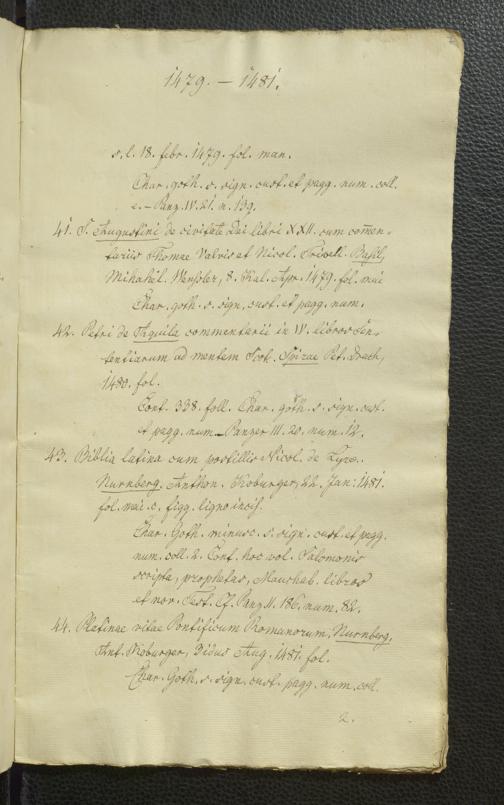 1479. – 1481.
s. l. 18. febr. 1479. fol. man.
Char. goth. s. sign. cust. et pagg. num. coll.
2. – Panz. IV. 21. n. 139.
41. S. Augustini de civitate Dei libri XXII. cum com̄en-
tariis Thomae Valois et Nicol. Triveth. Basil,
Michahel. Wenssler, 8. Kal. Apr. 1479. fol. mai
Char. goth. s. sign. cust. et pagg. num.
42. Petri de Aquila commentarii in IV. libros Sen-
tentiarum ad mentem Scoti. Spirae Pet. Drach,
1480. fol.
Cont. 338. foll. Char. goth. s. sign. cust.
et pagg. num. – Panzer III. 20. num. 12.
43. Biblia latina cum postillis Nicol. de Lyra.
Nurnberg. Anthon. Koburger, 22. Jan. 1481.
fol. mai. c. figg. ligno incis.
Char. Goth. minusc. s. sign. cust. et pagg.
num. coll. 2. Cont. hoc vol. Salomonis
scripta, prophetas, Machab. libros
et nov. Test. Cf. Panz. II. 186. num. 82.
44. Platinae vitae Pontificum Romanorum, Nurnberg,
Ant. Koburger, Idus Aug. 1481. fol.
Char. Goth. s. sign. cust. pagg. num. coll.
2.